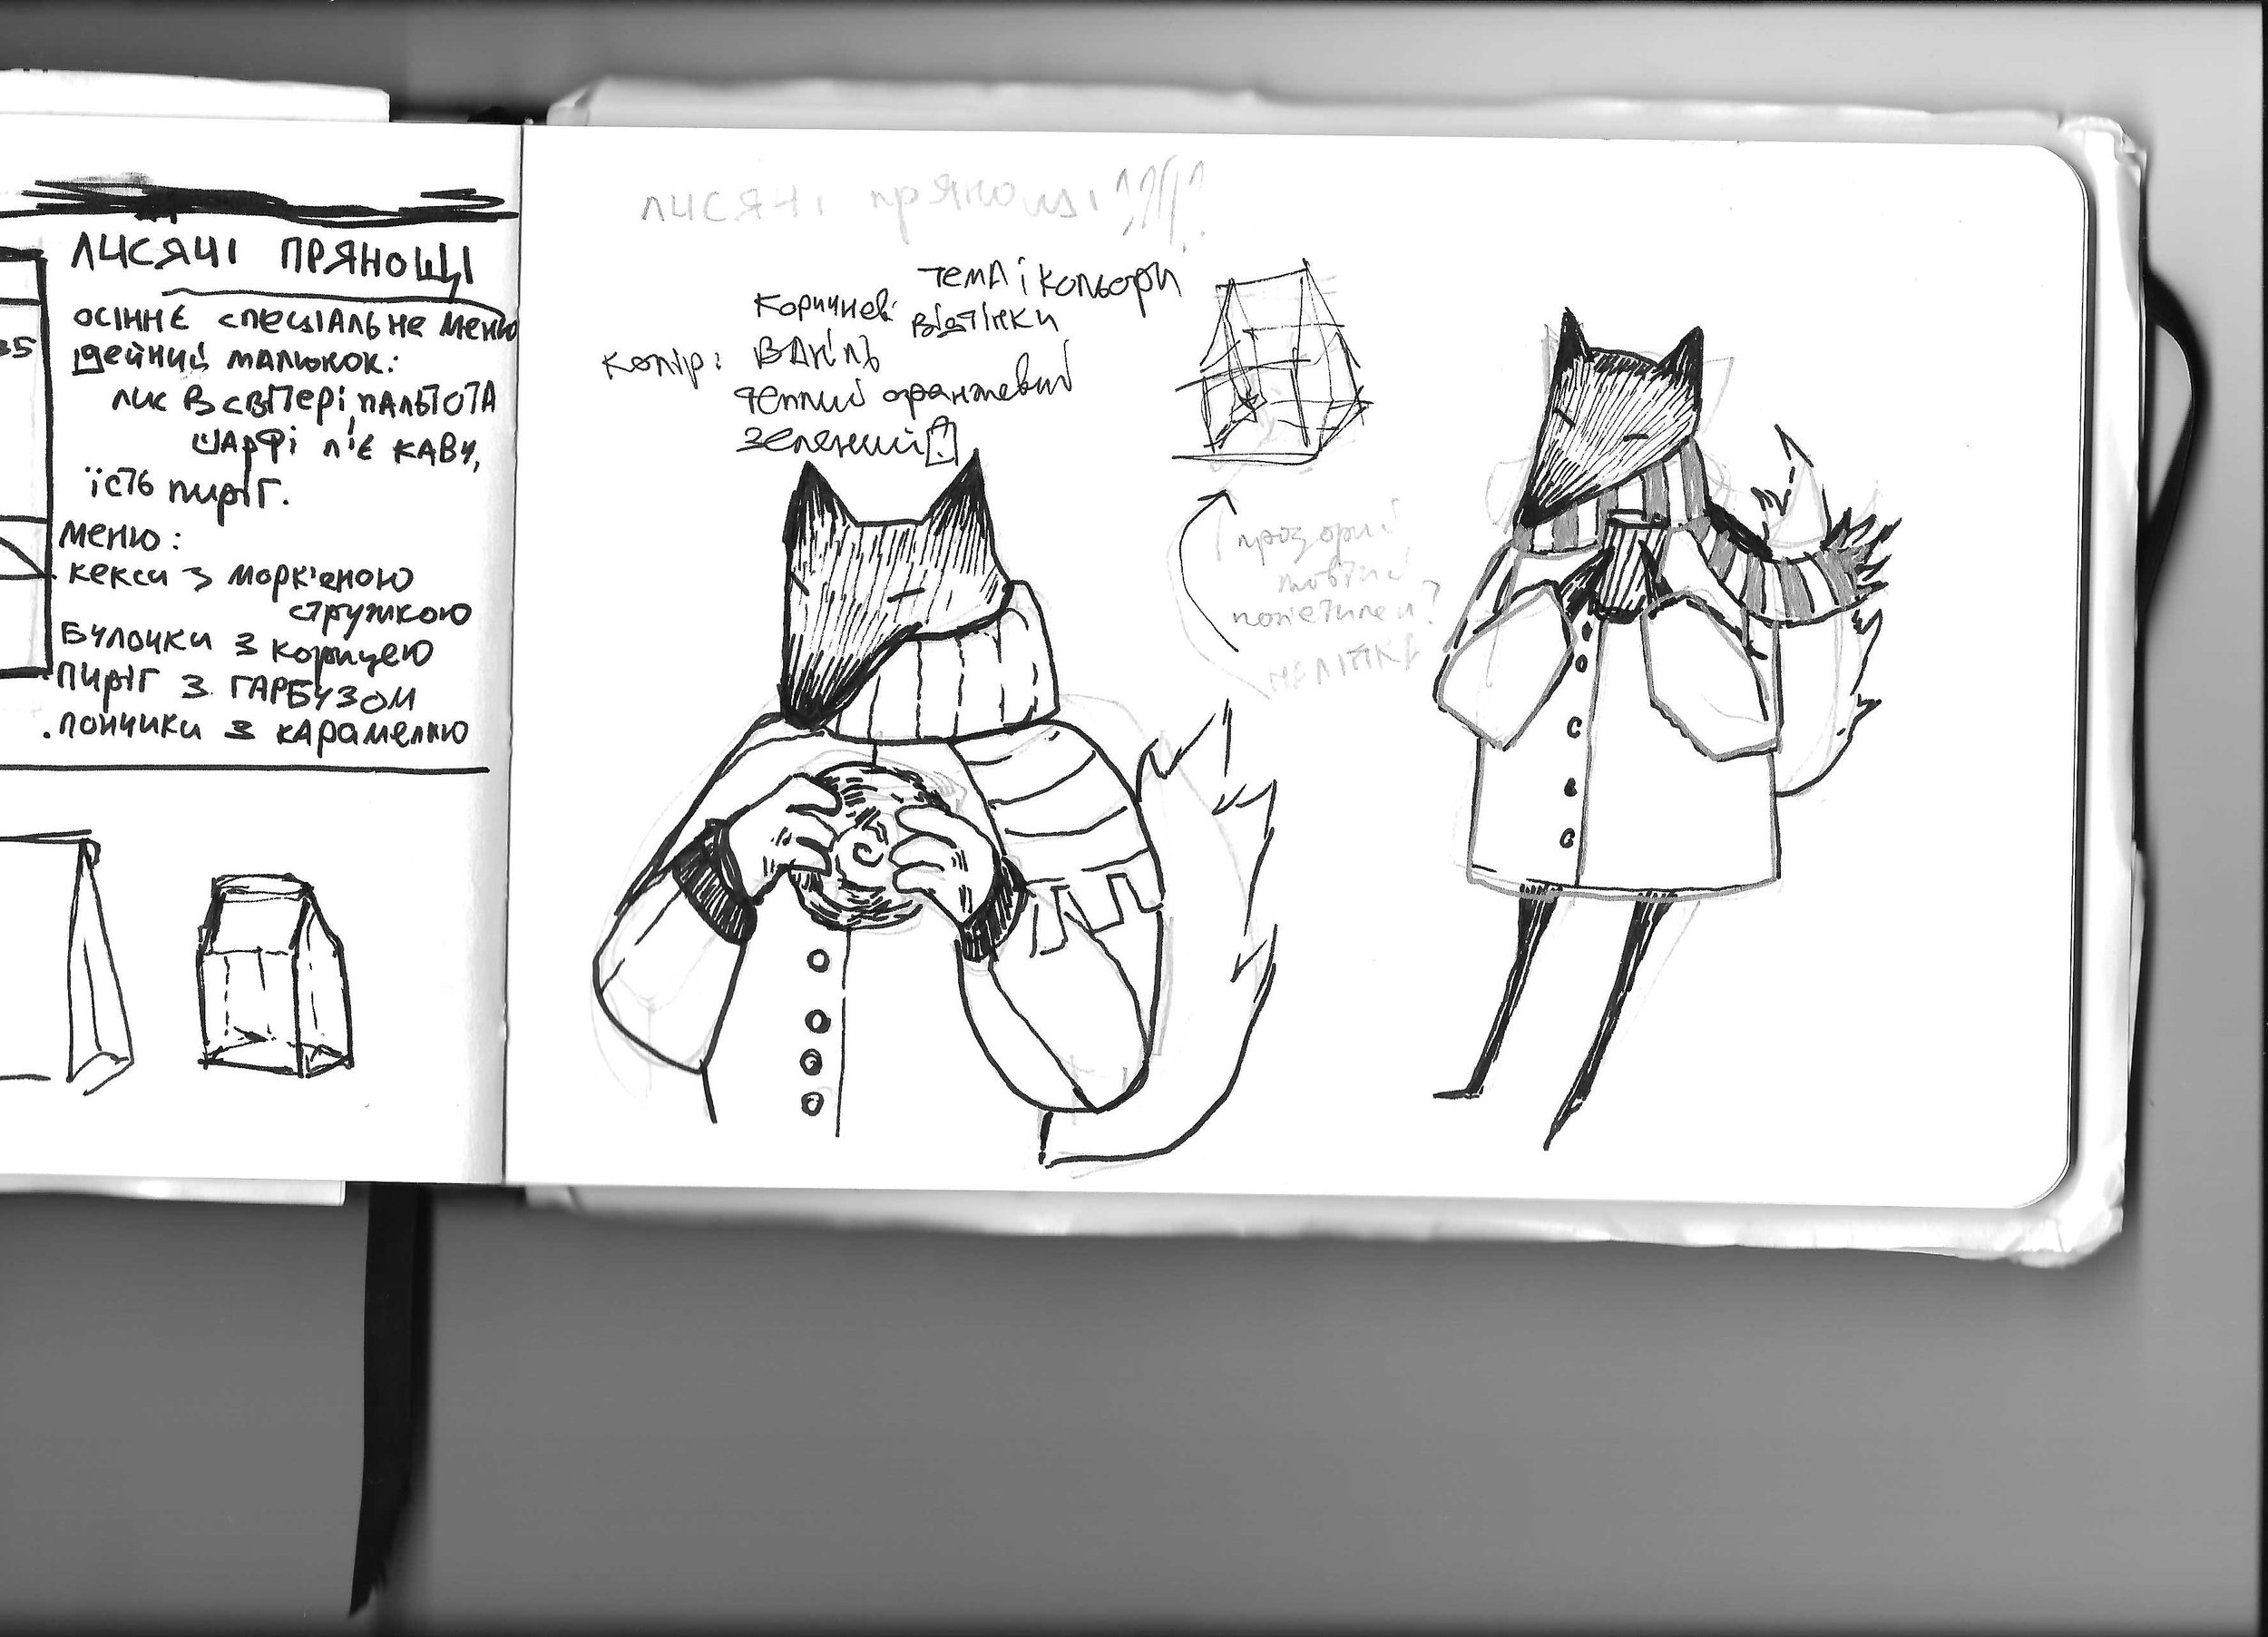 35
ЛИСЯЧІ ПРЯНОЩІ
ОСІННЄ СПЕЦІАЛЬНЕ МЕНЮ
ІДЕЙНИЙ МАЛЮНОК:
ЛИС В СВІТЕРІ, ПАЛЬТО ТА
ШАРФІ П'Є КАВУ,
ЇСТЬ ПИРІГ.
МЕНЮ:
КЕКСИ З МОРК'ЯНОЮ
СТРУЖКОЮ
БУЛОЧКИ З КОРИЦЕЮ
ПИРІГ З ГАРБУЗОМ
ПОНЧИКИ З КАРАМЕЛЛЮ
ЛИСЯЧІ ПРЯНОЩІ????
ТЕПЛІ КОЛЬОРИ
КОЛІР: КОРИЧНЕВІ ВІДТІНКИ
ВАНІЛЬ
ТЕПЛИЙ ОРАНЖЕВИЙ
ЗЕЛЕНИЙ!
прозорий
жовтий
поліетилен?
НАЛІПКА